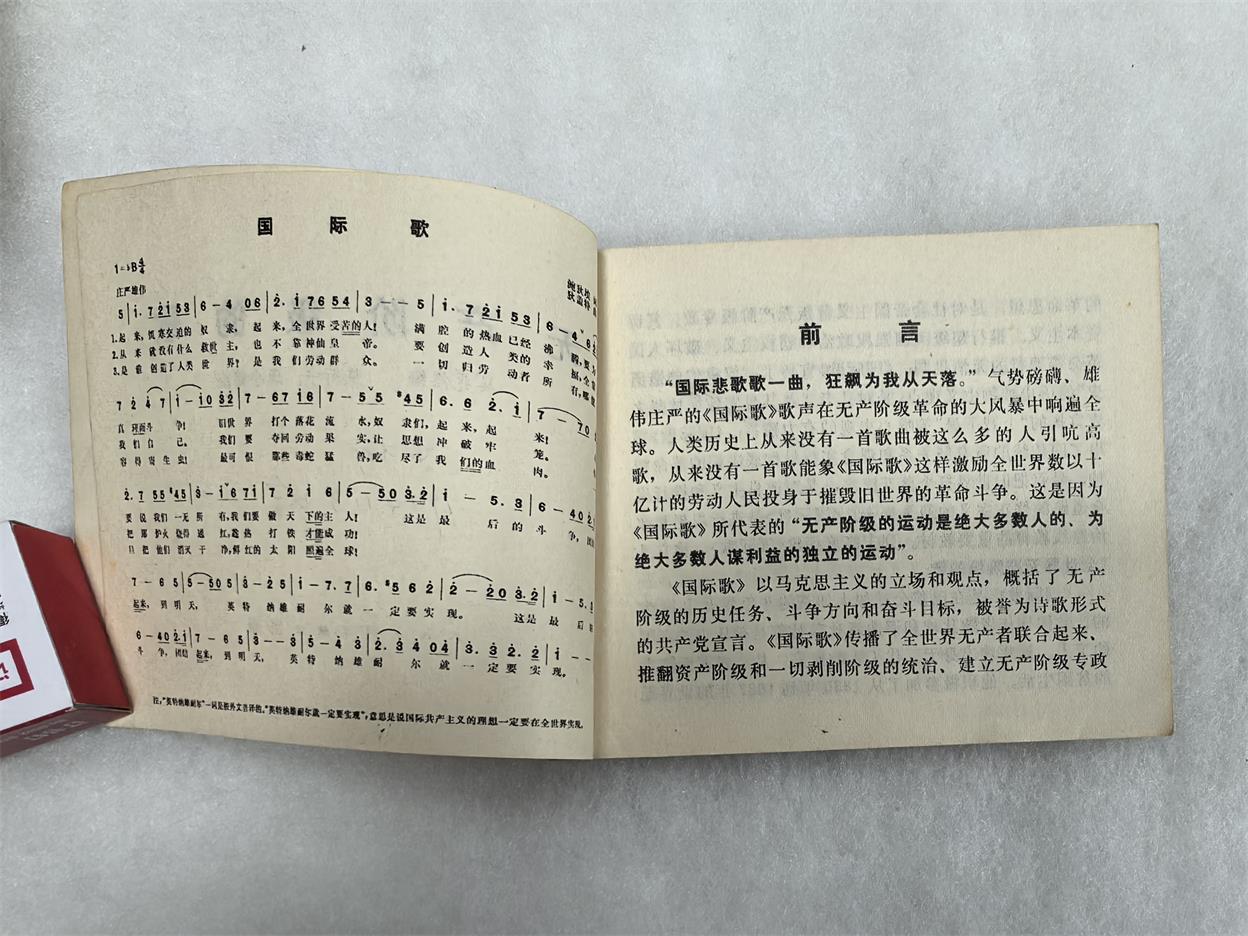 国际歌
1=♭B 4/4
庄严雄伟
5 | i. 7 2 i 5 3 | 6 - 4 0 6 | 2. i 7 6 5 4 | 3 - - 5 | i. 7 2 i 5 3 | 6 - 4
1.起来,饥寒交迫的奴隶,起来,全世界受苦的人!满腔的热血已经沸
2.从来就没有什么救世主,也不靠神仙皇帝。要创造人类的幸
3.是谁创造了人类世界?是我们劳动群众。一切归劳动者所
真理而斗争!旧世界打个落花流水,奴隶们,起来,起来!
我们自己。我们要夺回劳动果实,让思想冲破牢笼。
容得寄生虫!最可恨那些毒蛇猛兽,吃尽了我们的血肉。
要说我们一无所有,我们要做天下的主人!这是最后的斗争,
把那炉火烧得通红,趁热打铁才能成功!
旦把他们消灭干净,鲜红的太阳照遍全球!
7 - 6 5 | 5 - 5 0 5 | 3 - 2 5 | i - 7. 7 | 6. #5 6 2 | 2 - 2 0 3. 2 | i - 5. 3
起来,到明天,英特纳雄耐尔就一定要实现。这是最后
斗争,团结起来,到明天,英特纳雄耐尔就一定要实现。
注:“英特纳雄耐尔”一词是按外文音译的。“英特纳雄耐尔就一定要实现”,意思是说国际共产主义的理想一定要在全世界实现。
前言
“国际悲歌歌一曲,狂飙为我从天落。”气势磅礴、雄
伟庄严的《国际歌》歌声在无产阶级革命的大风暴中响遍全
球。人类历史上从来没有一首歌曲被这么多的人引吭高
歌,从来没有一首歌能象《国际歌》这样激励全世界数以十
亿计的劳动人民投身于摧毁旧世界的革命斗争。这是因为
《国际歌》所代表的“无产阶级的运动是绝大多数人的、为
绝大多数人谋利益的独立的运动”。
《国际歌》以马克思主义的立场和观点,概括了无产
阶级的历史任务、斗争方向和奋斗目标,被誉为诗歌形式
的共产党宣言。《国际歌》传播了全世界无产者联合起来、
推翻资产阶级和一切剥削阶级的统治、建立无产阶级专政